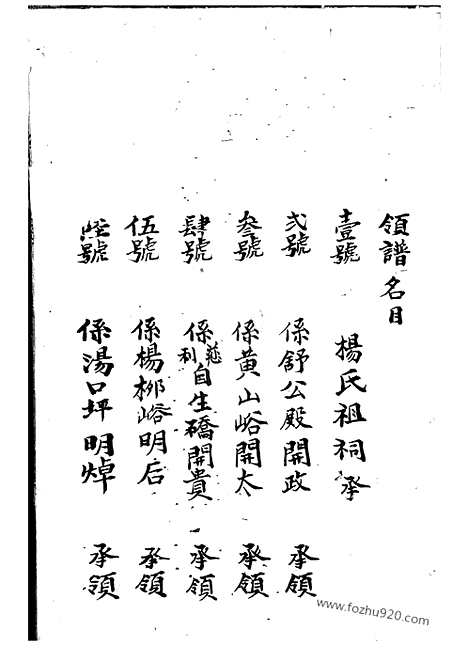 領譜名目
壹號 楊氏祖祠承
弍號 係舒公殿開政 承領
叁號 係黄山峪開太 承領
肆號 係慈利自生磽開貴 承領
伍號 係楊柳峪明后 承領
陸號 係湯口坪明焯 承領
www.fozhu920.com